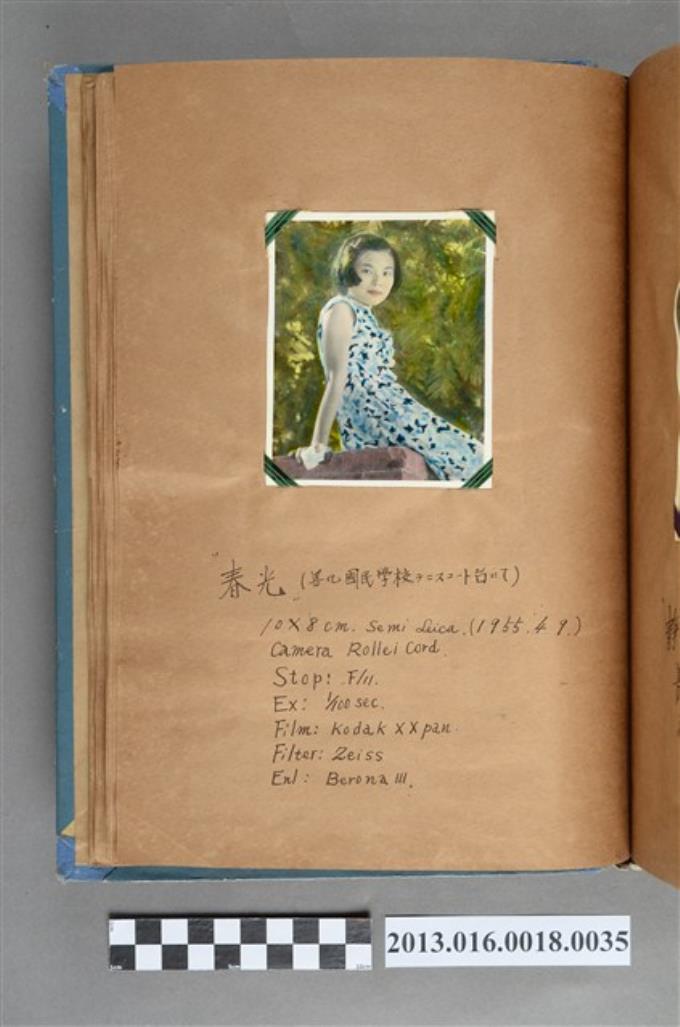 "春光" (善化國民學校テニスコート台ニテ)
10X8cm. Semi Leica. (1955.4.9.)
Camera Rollei Cord.
Stop: F/11.
Ex: 1/100 sec.
Film: Kodak XX pan.
Filter: Zeiss
Enl: Berona III.
2013.016.0018.0035